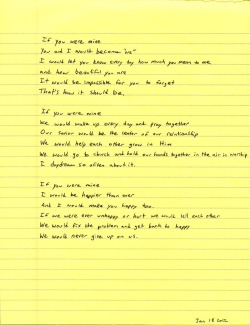 If you were mine
You and I would become "we"
I would let you know every day how much you mean to me
and how beautiful you are
It would be impossible for you to forget
That's how it should be.
If you were mine
We would wake up every day and pray together
Our Savior would be the center of our relationship
We would help each other grow in Him
We would go to church and hold our hands together in the air in worship
I daydream so often about it.
If you were mine
I would be happier than ever
And I would make you happy too.
If we were ever unhappy or hurt we would tell each other
We would fix the problem and get back to happy
We would never give up on us.
Jan 18